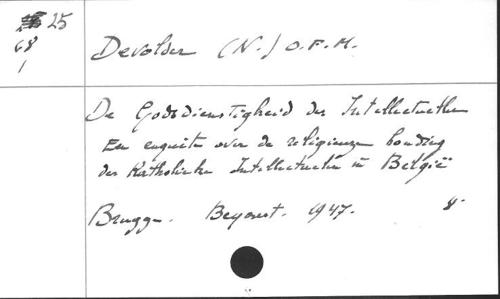 25
68
1
Devolder (N.) O.F.M.
De Godsdienstigheid der Intellectuellen
Een enquete over de religieuze houding
der Katholieke Intellectuelen in België
Brugge. Beyaert. 1947. 8°